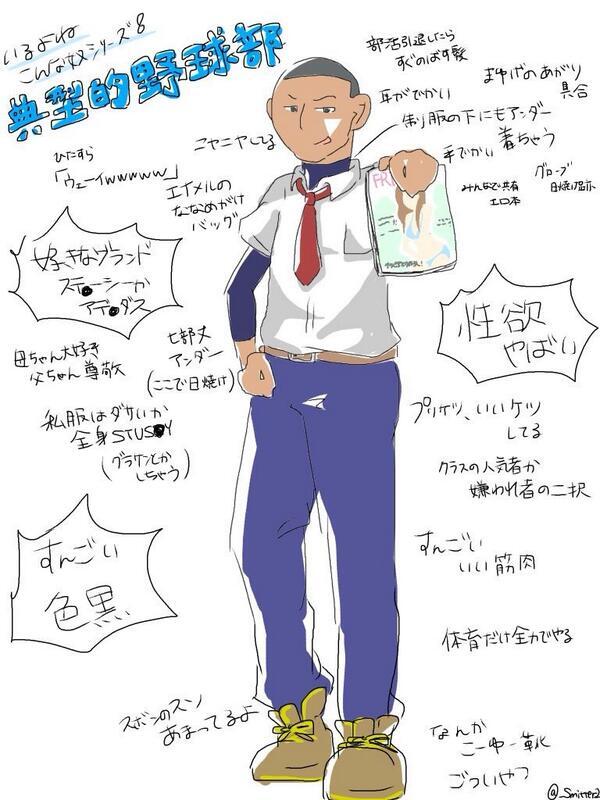 いるよね
こんな奴シリーズ8
典型的野球部
部活引退したら
すぐのばす髪
まゆげのあがり
具合
耳がでかい
制服の下にもアンダー
着ちゃう
手でかい
グローブ
日焼け
みんなで共有
エロ本
ニヤニヤしてる
ひたすら
「ウェーイwwwww」
エイメルの
ななめがけ
バッグ
FRI
好きなブランド
ステ●シーか
アデ●ダス
性欲
やばい
母ちゃん大好き
父ちゃん尊敬
七部丈
アンダー
(ここで日焼け)
私服はダサいか
全身STUS●Y
(グラサンとか
しちゃう)
プリケツ、いいケツ
してる
クラスの人気者か
嫌われ者の二択
すんごい
色黒
すんごい
いい筋肉
体育だけ全力でやる
ズボンのスソ
あまってるよ
なんか
こーゆー靴
ごついやつ
@_Smitter2